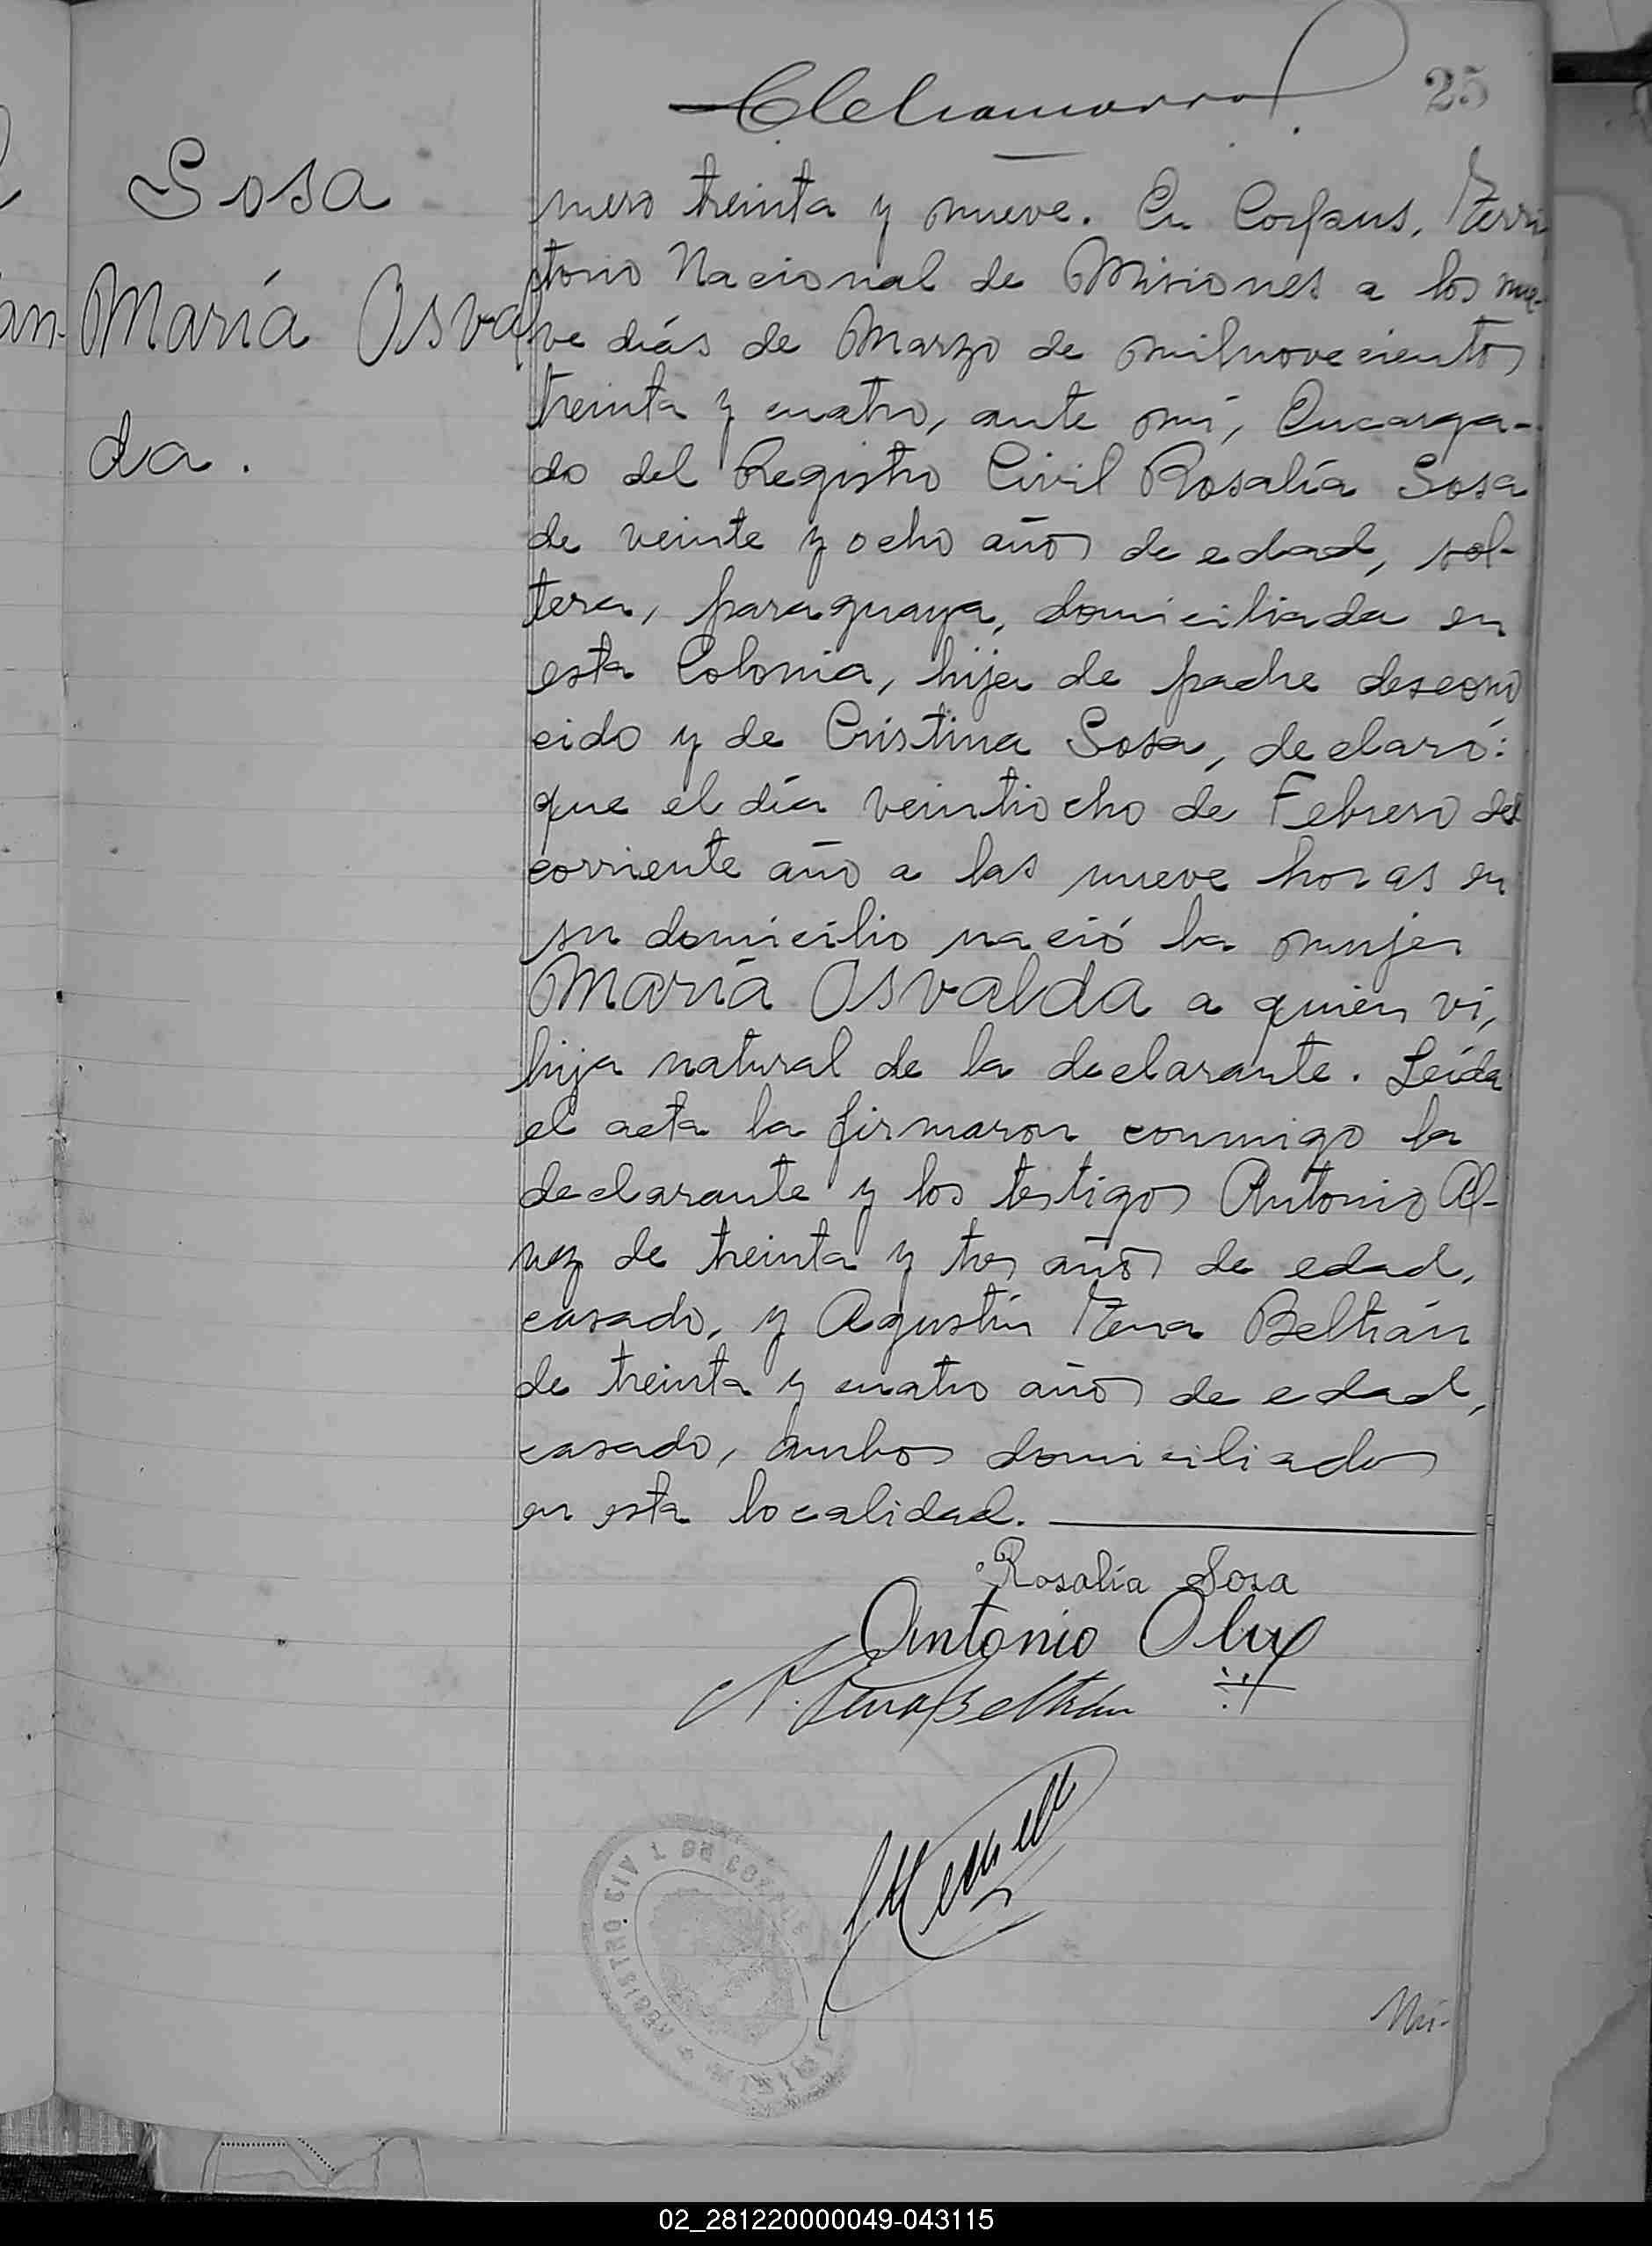 25
Sosa
María Osval
da.
mero treinta y nueve. En Corpus, Terri
torio Nacional de Misiones a los nue-
ve días de Marzo de milnovecientos
treinta y cuatro, ante mí, Encarga-
do del Registro Civil Rosalía Sosa
de veinte y ocho años de edad, sol-
tera, paraguaya, domiciliada en
esta Colonia, hija de padre descono
cido y de Cristina Sosa, declaró:
que el día veintiocho de Febrero del
corriente año a las nueve horas en
su domicilio nació la mujer
María Osvalda a quien vi,
hija natural de la declarante. Leída
el acta la firmaron conmigo la
declarante y los testigos Antonio Al-
vez de treinta y tres años de edad,
casado, y Agustín Tena Beltrán
de treinta y cuatro años de edad,
casado, ambos domiciliados
en esta localidad.
Rosalía Sosa
Antonio
A. Tena Beltrán
REGISTRO CIVIL DE CORPUS
MISIONES
Nú-
02_281220000049-043115